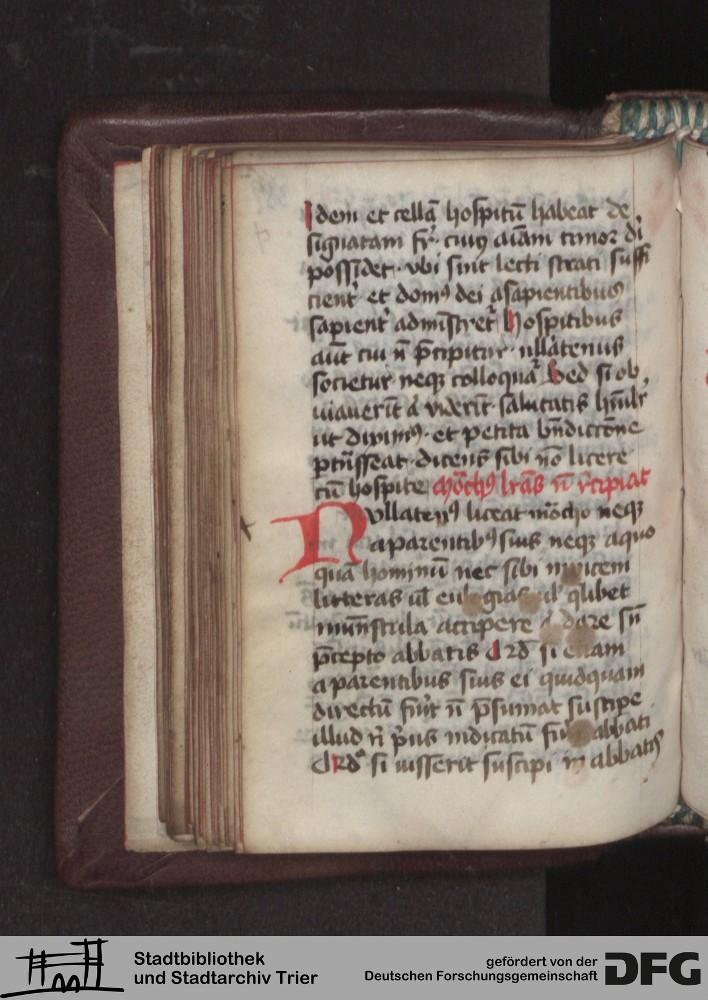 Idem et cellā hospitū habeat de
signatam fr̄. cuiꝰ aīam timor dī
possidet. vbi sint lecti strati suffi
cient̄ et domꝰ dei a sapientibus
sapient̄ admīstret̄ Hospitibus
aūt cui n̄ p̄cipitur. nllātenus
societur neqꝫ colloquat̄ Sed si ob
uiauerīt ł viderīt salutatis hūīlr
ut diximꝰ. et petita bn̄dictōne
ptn̄sseat. dicens sibi nō licere
cū hospite Mōchꝰ lrās n̄ r̄cipiat
Nvllatenꝰ liceat mōcho neqꝫ
a parentibꝰ suis neqꝫ a quo
quā hominū nec sibi inuicem
litteras ul̄ eulogias ul̄ qlibet
munūscula accipere ł dare sn̄
p̄cepto abbatis Qrd̄ si etiam
a parentibus suis ei quidquam
directū fuīt n̄ p̄sumat suscipe
illud n̄ p̄us indicatū fuīt abbati
Qrd̄ si iusserit suscipi in abbatis
Stadtbibliothek
und Stadtarchiv Trier
gefördert von der
Deutschen Forschungsgemeinschaft
DFG